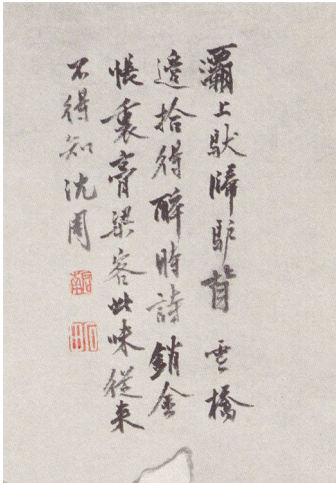 灞上馱歸驢背雪橋
邊拾得醉時詩銷金
帳裏膏粱客此味從来
不得知沈周